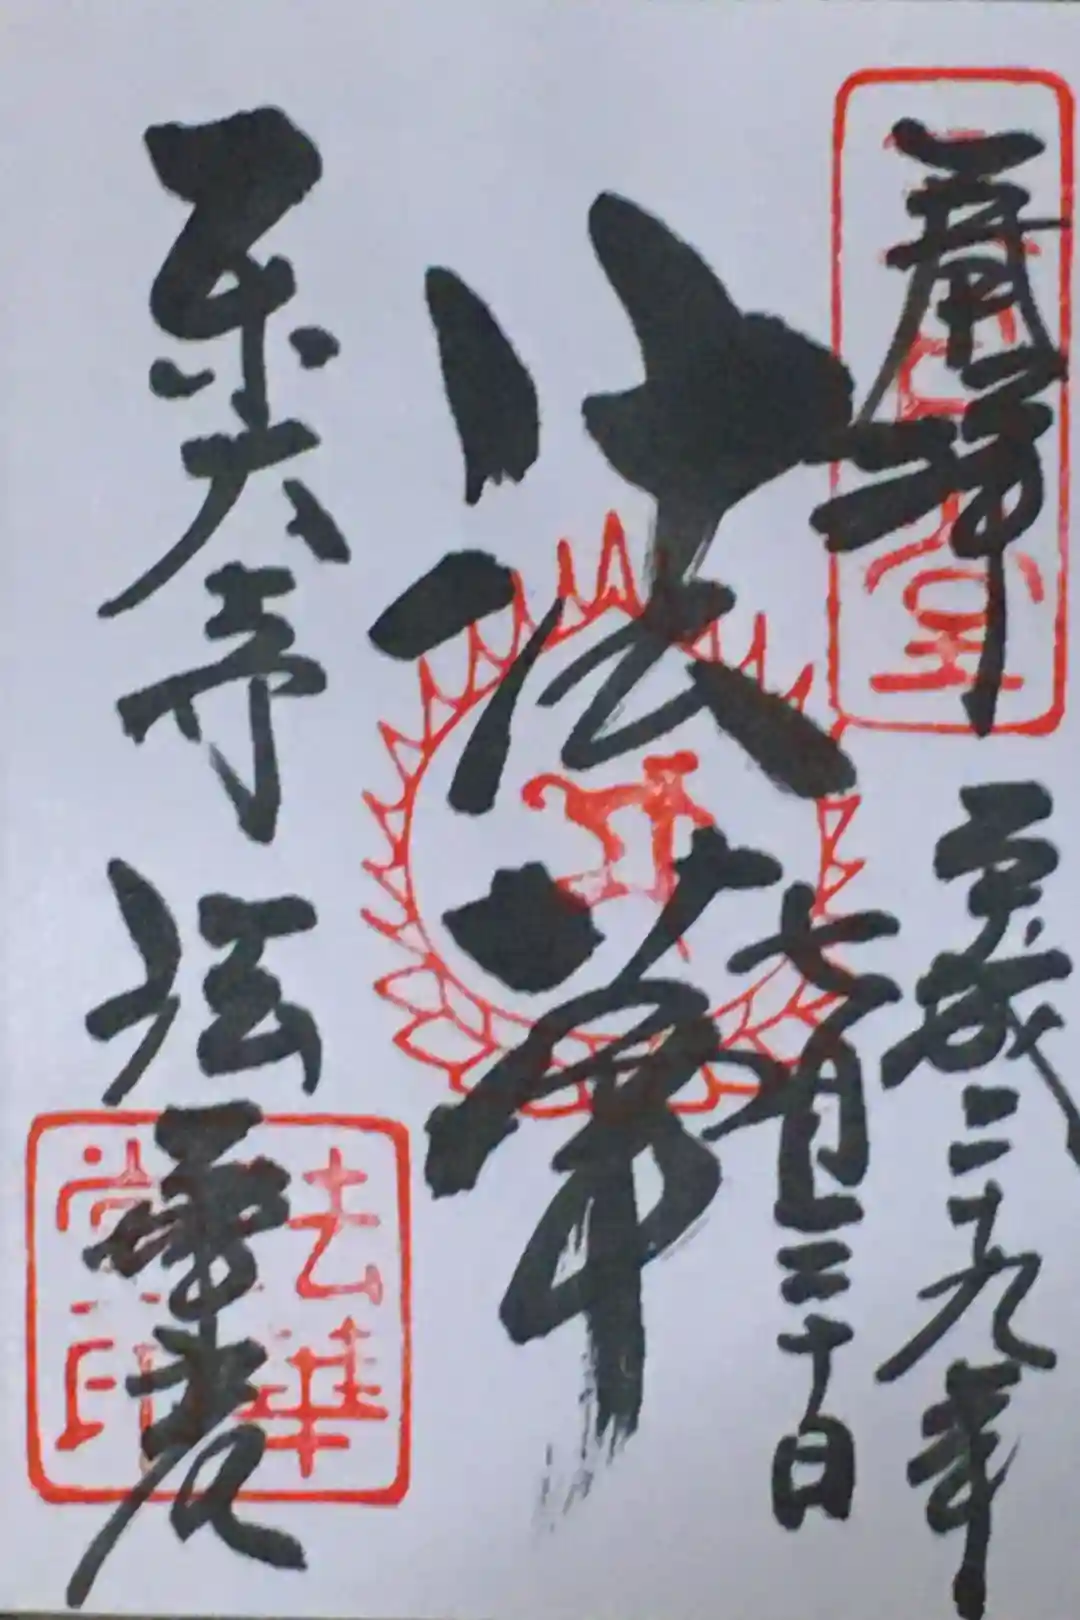 奉拝
平成二十九年
七月三十日
法華
東大寺 法華堂
法華堂印